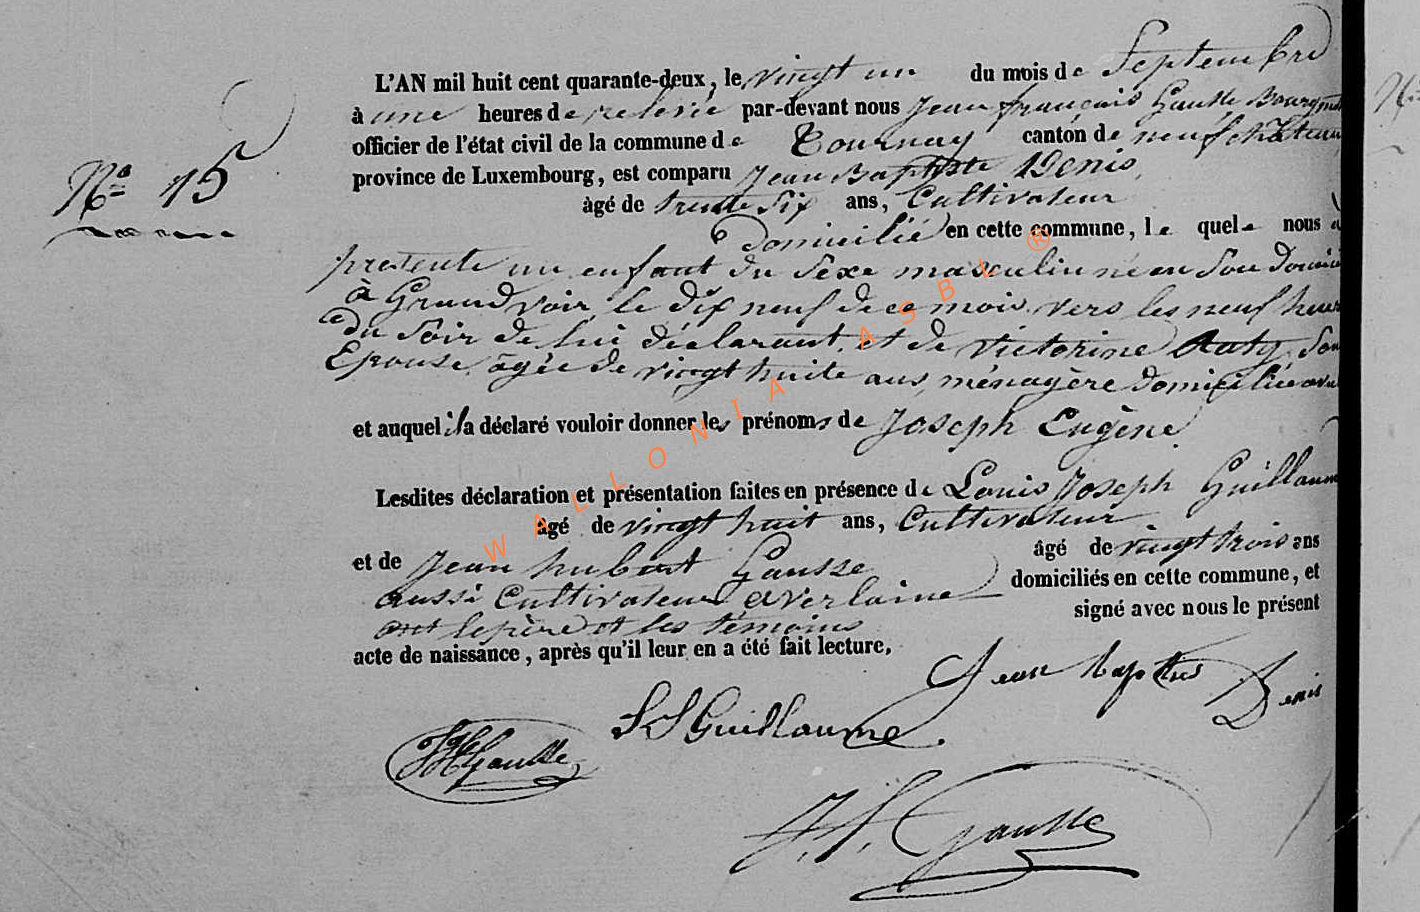 L'AN mil huit cent quarante-deux, le vingt un du mois de Septembre
à une heures de relevée par-devant nous Jean françois Gausse Bourgm
officier de l'état civil de la commune de Tournay canton de neufchâteau
N° 15
province de Luxembourg, est comparu Jean Baptiste Denis,
âgé de trente Six ans, Cultivateur
domicilié en cette commune, le quel nous a
présenté un enfant du Sexe masculin né en Son domici
à Grandvoir, le dix neuf de ce mois vers les neuf heur
du Soir de lui déclarant, et de Victorine Son
Epouse, agée de vingt huite ans, ménagère domiciliée avec
et auquel il a déclaré vouloir donner les prénoms de Joseph Eugène
Lesdites déclaration et présentation faites en présence de Louis Joseph Guillaum
âgé de vingt huit ans, Cultivateur
et de Jean hubert Gausse âgé de vingt trois ans
aussi Cultivateur a verlaine domiciliés en cette commune, et
ont le père et les témoins signé avec nous le présent
acte de naissance, après qu'il leur en a été fait lecture,
Jean baptiste Denis
Guillaume
JH Gausse
J. f. Gausse
WALLONIA ASBL ®